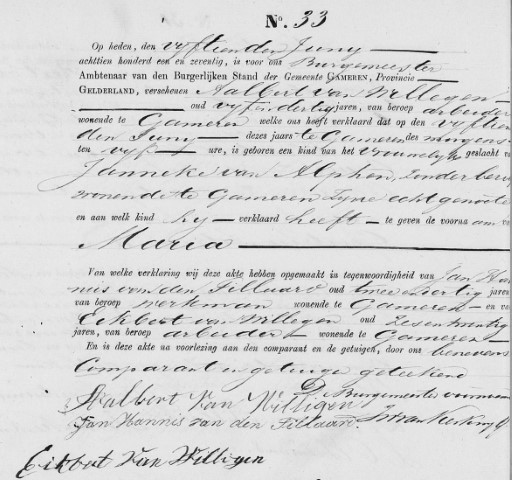 No. 33
Op heden, den vyftienden Juny
achttien honderd een en zeventig, is voor ons Burgemeester
Ambtenaar van den Burgerlijken Stand der Gemeente GAMEREN, Provincie
GELDERLAND, verschenen Aalbert van Willegen
oud vyfendertig jaren, van beroep arbeider
wonende te Gameren welke ons heeft verklaard dat op den vyftien
den Juny dezes jaars te Gameren des morgens
ten vyf ure, is geboren een kind van het Vrouwelyk geslacht v
Janneke van Alphen, zonder beroep
wonende te Gameren zyne echtgenoote
en aan welk kind hy verklaard heeft te geven de voorna am va
Maria
Van welke verklaring wij deze akte hebben opgemaakt in tegenwoordigheid van Jan H
nnis van den Fillaard oud twee en jaren
van beroep werkman wonende te Gameren en v
Eikbert van Willegen oud zesentwintig
jaren, van beroep arbeider wonende te Gameren
En is deze akte na voorlezing aan den comparant en de getuigen, door ons benevens
Comparant en getuige geteekend
Aalbert Van Willigen De Burgemeester voornoemd
Jan Hannis van den Fillaar
Eikbert Van Willigen